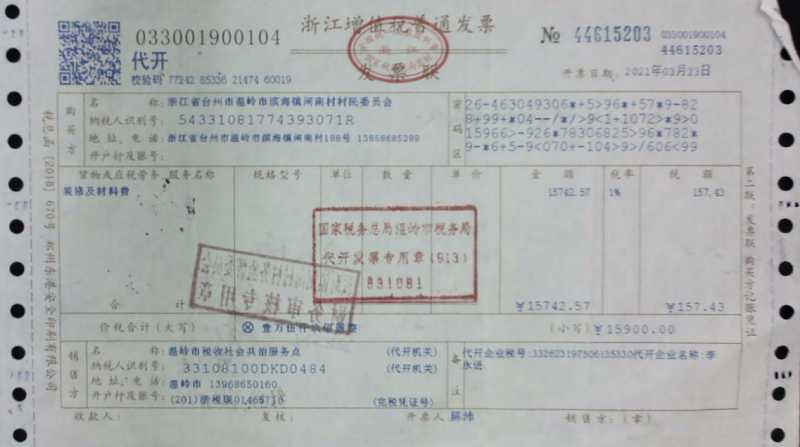 033001900104
浙江增值税普通发票
№ 44615203
033001900104
44615203
代开
发票联
校验码 77242 85336 21474 60019
开票日期: 2021年03月23日
购买方
名 称: 浙江省台州市温岭市滨海镇闸南村村民委员会
纳税人识别号: 54331081774393071R
地 址、电 话: 浙江省台州市温岭市滨海镇闸南村188号 13968685288
开户行及账号:
密码区
26-463049306*+5>96*+57*9-82
8+99+*04--/*/>9<1-1072>*9>0
15966>-926*78306825>96*782*
9-*6+5-9<070+-104>9>/606<99
货物或应税劳务、服务名称 规格型号 单位 数 量 单 价 金 额 税率 税 额
装修及材料费 15742.57 1% 157.43
国家税务总局温岭市税务局
代开发票专用章(913)
831081
财务审核专用章
合 计 ¥15742.57 ¥157.43
价税合计(大写) ⊗ 壹万伍仟玖佰圆整 (小写) ¥15900.00
销售方
名 称: 温岭市税收社会共治服务点 (代开机关)
纳税人识别号: 33108100DKD0484 (代开机关)
地 址、电 话: 温岭市 13968650160
开户行及账号: (201)浙税银01465710 (完税凭证号)
备注
代开企业税号:332623197506135330代开企业名称:李
永进.
收款人: 复核: 开票人: 销售方:(章)
税总函〔2018〕670号
第二联:发票联 购买方记账凭证